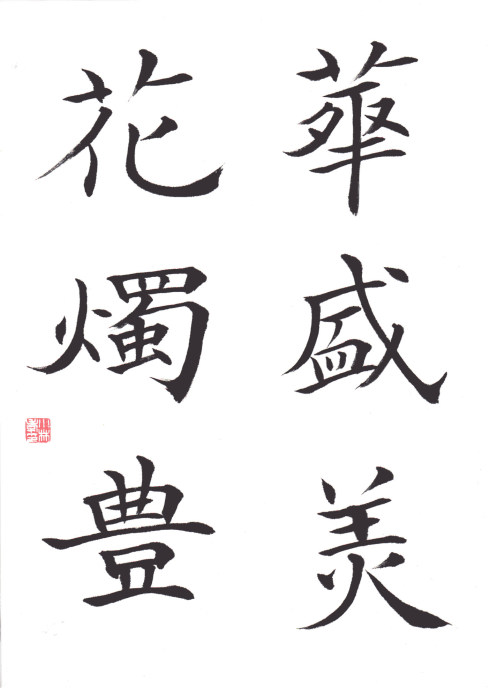 華盛美
花燭豊